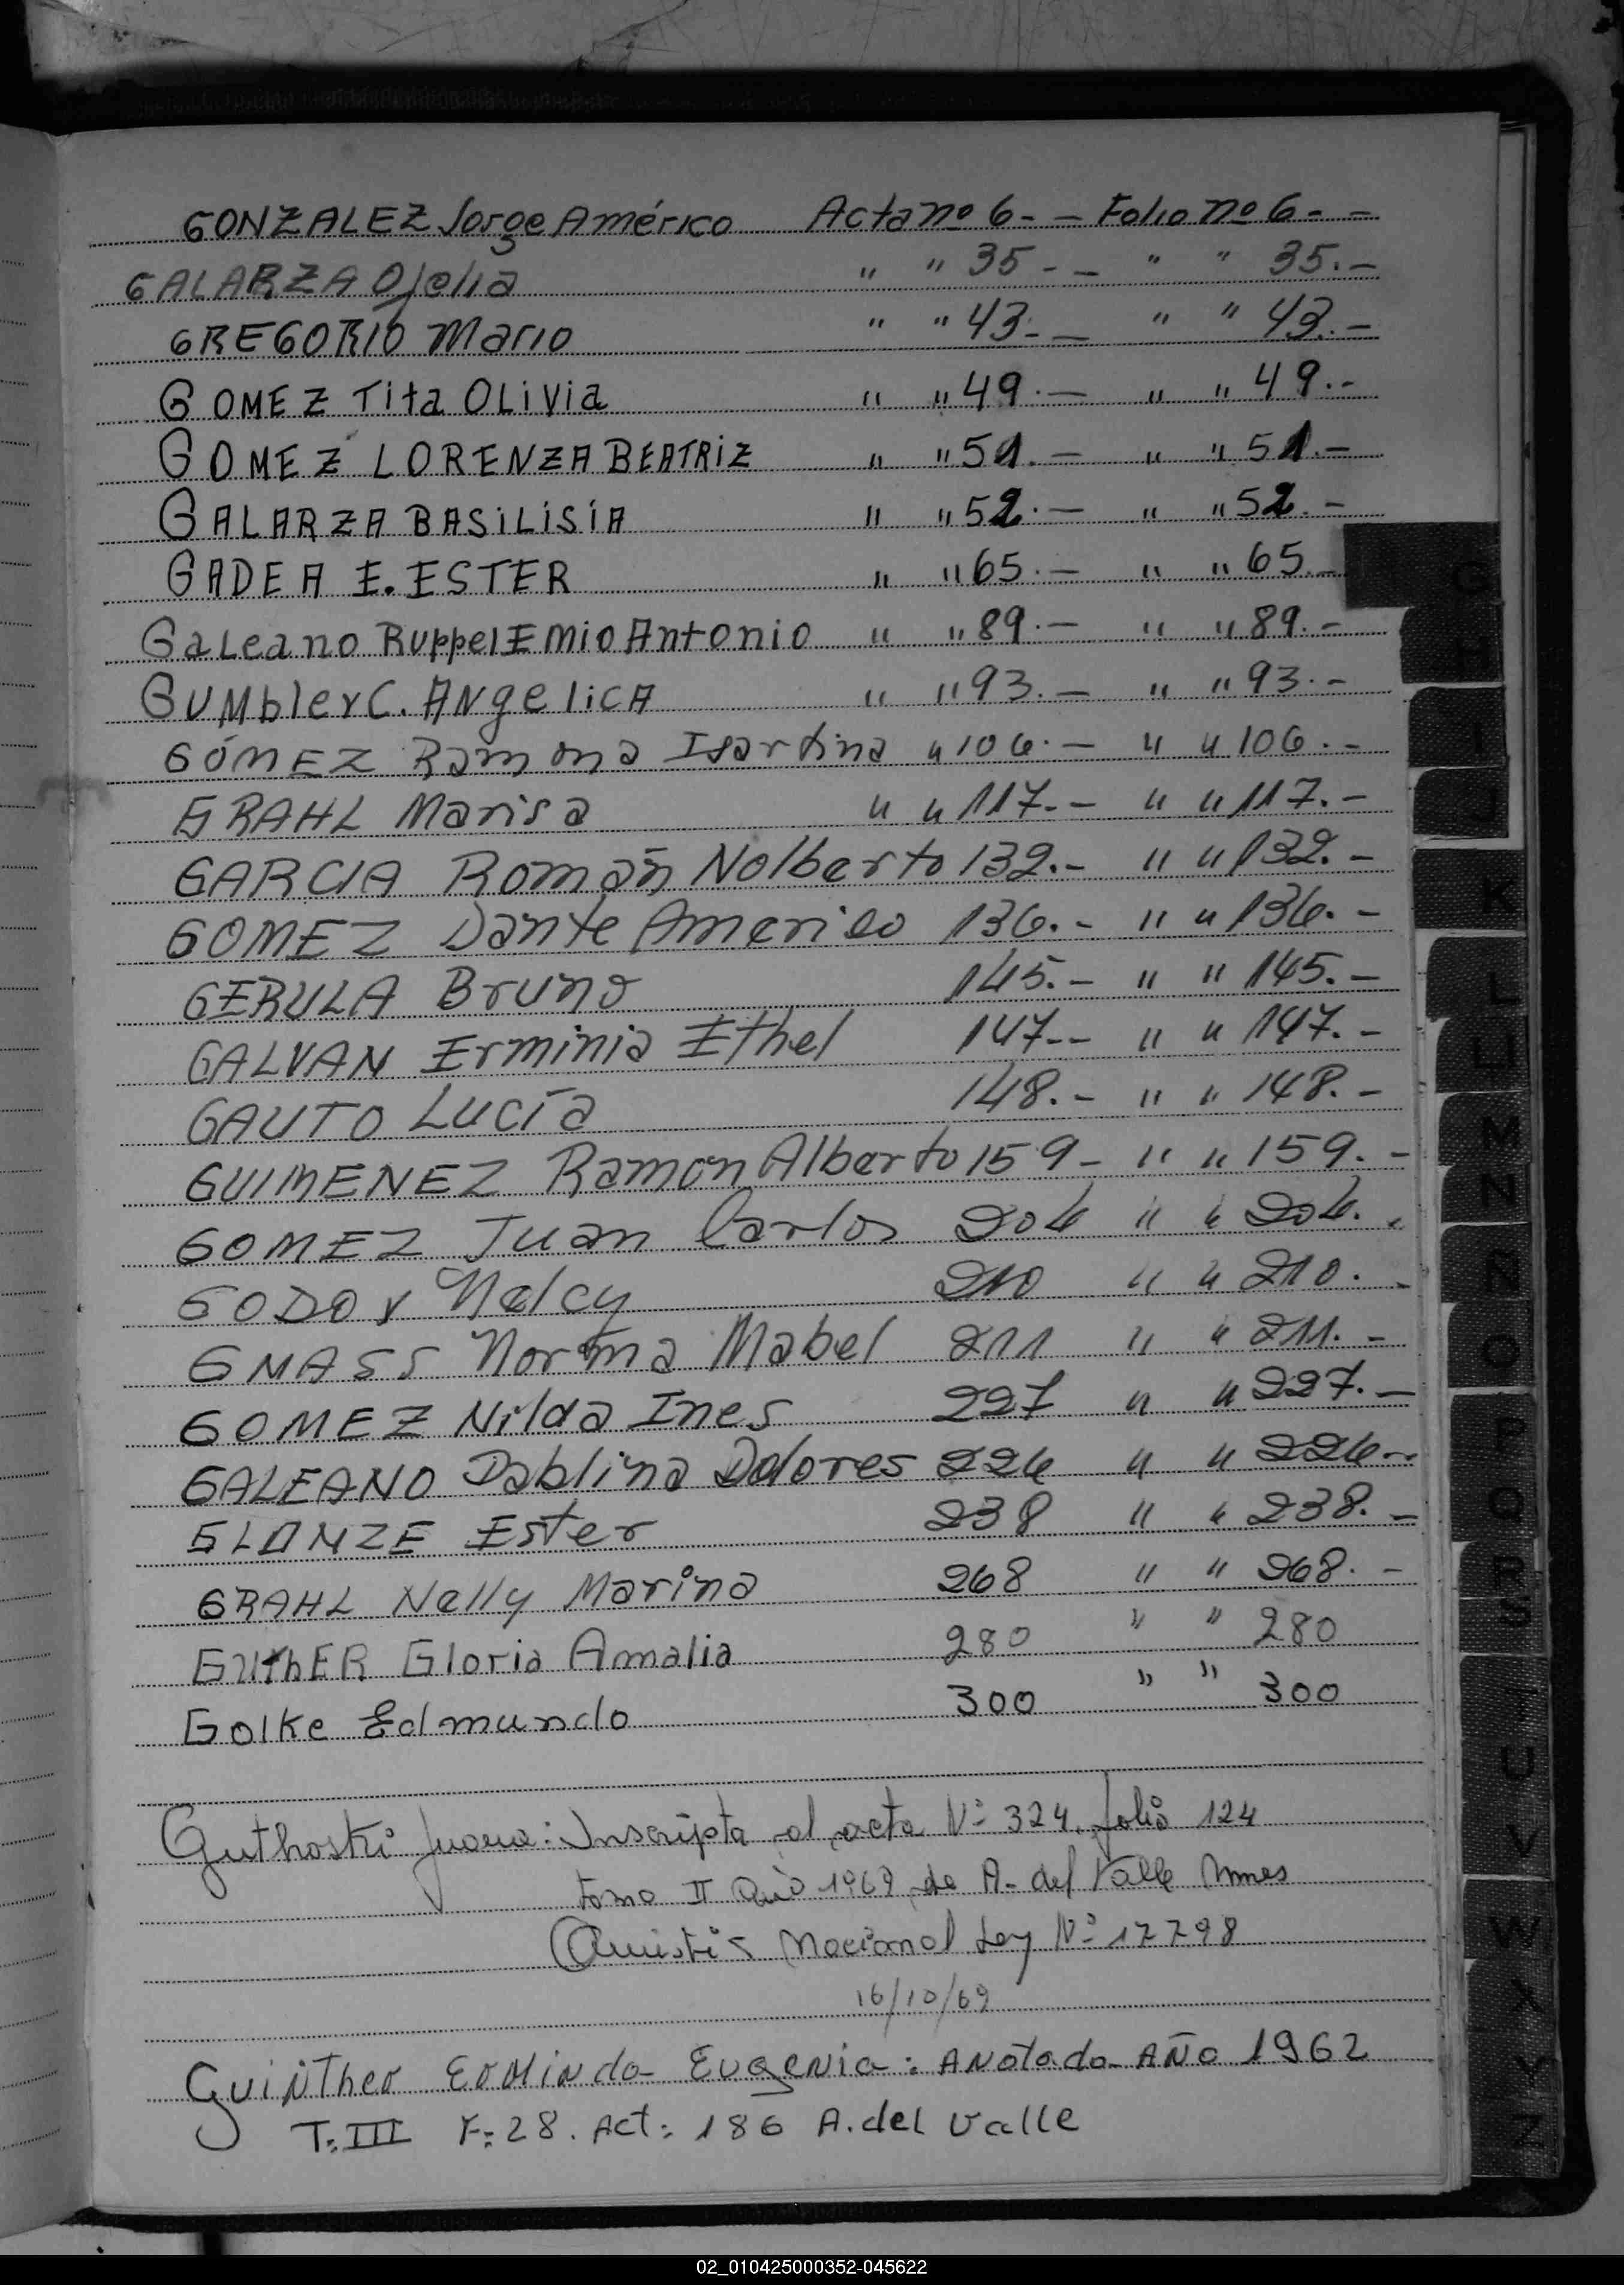 GONZALEZ Jorge Américo Acta nº 6.- — Folio nº 6.- —
GALARZA Ofelia " " 35.- — " " 35.—
GREGORIO Mario " " 43.- — " " 43.—
GOMEZ Tita OLiVia " " 49.— " " 49.-
GOMEZ LORENZA BEATRiZ " " 51.— " " 51.—
GALARZA BASiLiSiA " " 52.— " " 52.—
GADEA E. ESTER " " 65.— " " 65.—
GaLeano Ruppel EmioAntonio " " 89.— " " 89.—
GUMbler C. ANgelicA " " 93.— " " 93.-
GÓMEZ Ramona Isartina " 106.— " " 106.-
GRAHL Marisa " " 117.- " " 117.—
GARCIA Román Nolberto 132.- " " 132.—
GOMEZ Dante Americo 136.- " " 136.—
GERULA Bruno 145.- " " 145.—
GALVAN Erminia Ethel 147-- " " 147.-
GAUTO Lucía 148.- " " 148.-
GUIMENEZ Ramon Alberto 159- " " 159.-
GOMEZ Juan Carlos 204 " " 204.
GODOY Nelcy 210 " " 210.-
GMASS Norma Mabel 211 " " 211.-
GOMEZ Nilda Ines 227 " " 227.—
GALEANO Dablina Dolores 226 " " 226--
GLANZE Ester 238 " " 238.—
GRAHL Nelly Marina 268 " " 268.-
GUthER Gloria Amalia 280 " " 280
Golke Edmundo 300 " " 300
Guthoski Juana: Inscripta al acta Nº 324, folio 124
tomo II Año 1969 de A. del Valle Mnes
Amistia Nacional Ley Nº 17798
16/10/69
GuiNTher ErMinda EugeNia: ANotada Año 1962
T: III F: 28. Act: 186 A. del Valle
G
H
I
J
K
L
LL
M
N
Ñ
O
P
Q
R
S
T
U
V
W
X
Y
Z
02_010425000352-045622